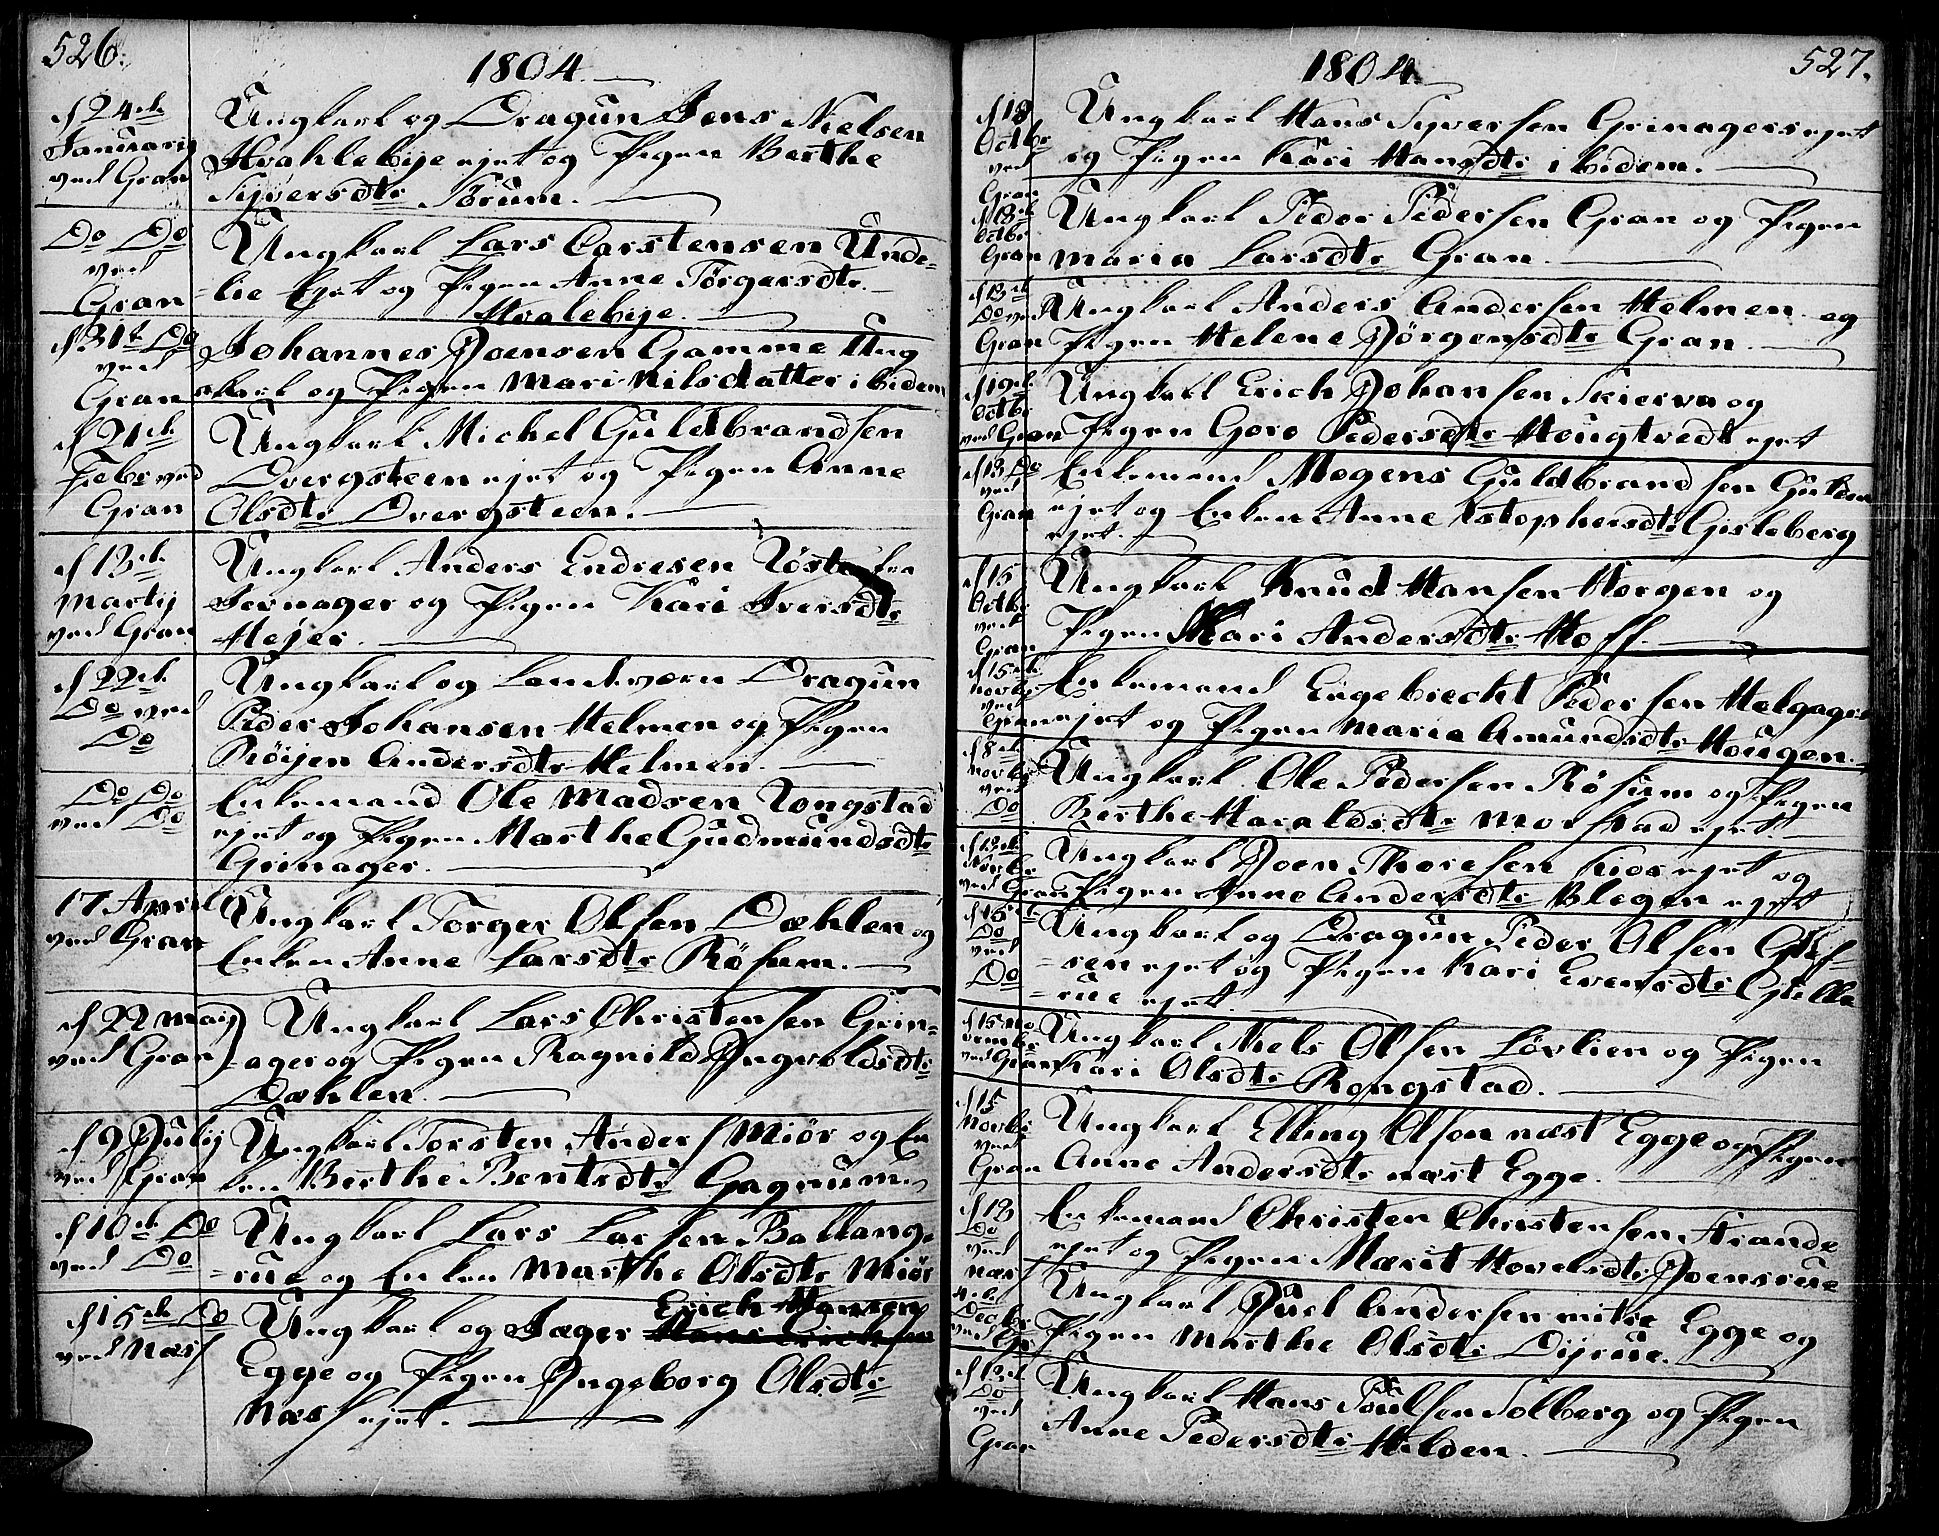 526.
1804
d 24de
Januarij
ved Gran
Ungkarl og Dragun Jens Nielsen
Hvahlebije ejet og Pigen Berthe
Syversdtr Sørum.
Do Do
ved
Gran
Ungkarl Lars Carstensen Unde-
-lie Ejet og Pigen Anne Törgersdtr.
Hvalebije.
d 31t Do
ved
Gran
Johannes Joensen Gamme Ung
karl og Pigen Mari Nilsdatter ibidem
d 21de
Febr ved
Gran
Ungkarl Michel Guldbrandsen
Dvergsteen ejet og Pigen Anne
Olsdtr Dvergsteen.
d 13de
Martij
ved Gran
Ungkarl Anders Endresen fra
Jevnager og Pigen Kari Iversdtr
Hejer.
d 22de
Do ved
Do
Ungkarl og Landværn Dragun
Peder Johansen Helmen og Pigen
Röijen Andersdtr Helmen.
Do Do
ved Do
Enkemand Ole Madsen Rongstad
ejet og Pigen Marthe Gudmundsdtr
Grinager.
17 April
ved Gran
Ungkarl Torger Olsen Dæhlen og
Enken Anne Larsdtr Røsum.
d 22 Maij
ved Gran
Ungkarl Lars Christensen Grin-
-ager og Pigen Ragnild Yngvoldsdtr
Dæhlen.
d 9 Julij
ved Gran
Ungkarl Torsten Anders Miör og En
ken Berthe Bentsdtr Gagnum.
d 10de Do
ved Do
Ungkarl Lars Larsen Ballang-
-rue og Enken Marthe Olsdtr Miör
d 15de Do
ved Næs
Erich Hansen
Ungkarl og Jæger Hans Erichsen
Egge og Pigen Ingeborg Olsdtr
Næs ejet.
1804
527.
d 18
Octbr
ved
Gran
Ungkarl Hans Syversen Grinagers ejet
og Pigen Kari Hansdtr ibidem.
d 13de
Octbr
Gran
Ungkarl Peder Pedersen Gran og Pigen
Maria Larsdtr Gran.
d 13de
Do ved
Gran
Ungkarl Anders Andersen Helmen og
Pigen Helene Jörgensdtr Gran.
d 19de
Octbr
ved Gran
Ungkarl Erich Johansen Skierva og
Pigen Goro Pedersdtr Hougtvedt ejet
d 13 Do
ved
Gran
Enkemand Mogens Guldbrandsen Gulden
ejet og Enken Anne Kstophersdtr Gisleberg
ejet.
d 15
Octbr
ved
Gran
Ungkarl Knud Hansen Horgen og
Pigen Kari Andersdtr Hoff.
d 15de
Novbr
ved
Gran
Enkemand Engebrecht Pedersen Helgager
ejet og Pigen Marie Amundsdtr Hougen.
d 8de
Novbr
ved
Do
Ungkarl Ole Pedersen Rösum og Pigen
Berthe Haraldsdtr Morstad ejet
d 12de
Novbr
ved Gran
Ungkarl Joen Thoresen Kior ejet og
Pigen Anne Andersdtr Blegen ejet
d 15de
Do
ved
Do
Ungkarl og Dragun Peder Olsen
-sen ejet og Pigen Kari Evensdtr Gulle
-rue ejet
d 15 No
vember
ved Gran
Ungkarl Niels Olsen Lövlien og Pigen
Kari Olsdtr Rongstad.
d 15
Novbr
ved
Gran
Ungkarl Elling Olsen næst Egge og Pigen
Anne Andersdtr næst Egge.
d 18
Do
ved
Næs
Enkemand Christen Christensen Strande
ejet og Pigen Marit Hovelsdtr Joensrue
4de
Decbr
ved
Gr
Ungkarl Juel Andersen mitre Egge og
Pigen Marthe Olsdtr Dijrue.
d 12de
Do
ved
Gran
Ungkarl Hans Poulsen Solberg og Pigen
Anne Pedersdtr Hilden.